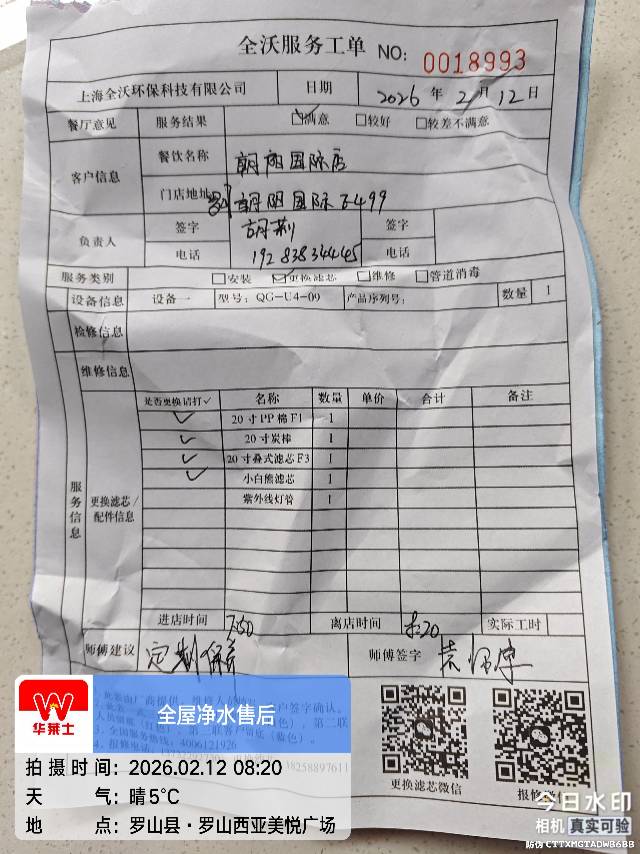 全沃服务工单 NO: 0018993
上海全沃环保科技有限公司 日期 2026 年 2 月 12 日
餐厅意见 服务结果 满意 较好 较差不满意
客户信息 餐饮名称 朝阳国际店
门店地址 朝阳国际
负责人 签字 签字
电话 19283834445 电话
服务类别 安装 更换滤芯 维修 管道消毒
设备信息 设备一 型号: QG-U4-09 产品序列号: 数量 1
检修信息
维修信息
服务信息 更换滤芯/配件信息 是否更换请打✓ 名称 数量 单价 合计 备注
✓ 20寸PP棉F1 1
✓ 20寸炭棒 1
✓ 20寸叠式滤芯F3 1
✓ 小白熊滤芯 1
紫外线灯管 1
进店时间 7:50 离店时间 8:20 实际工时
师傅建议 定制保养 师傅签字
3. 全国服务热线: 4006121926
更换滤芯微信
华莱士
全屋净水售后
拍摄时间: 2026.02.12 08:20
天气: 晴5℃
地点: 罗山县·罗山西亚美悦广场
今日水印
相机 真实可验
防伪 CTTXMGTADWB6BB